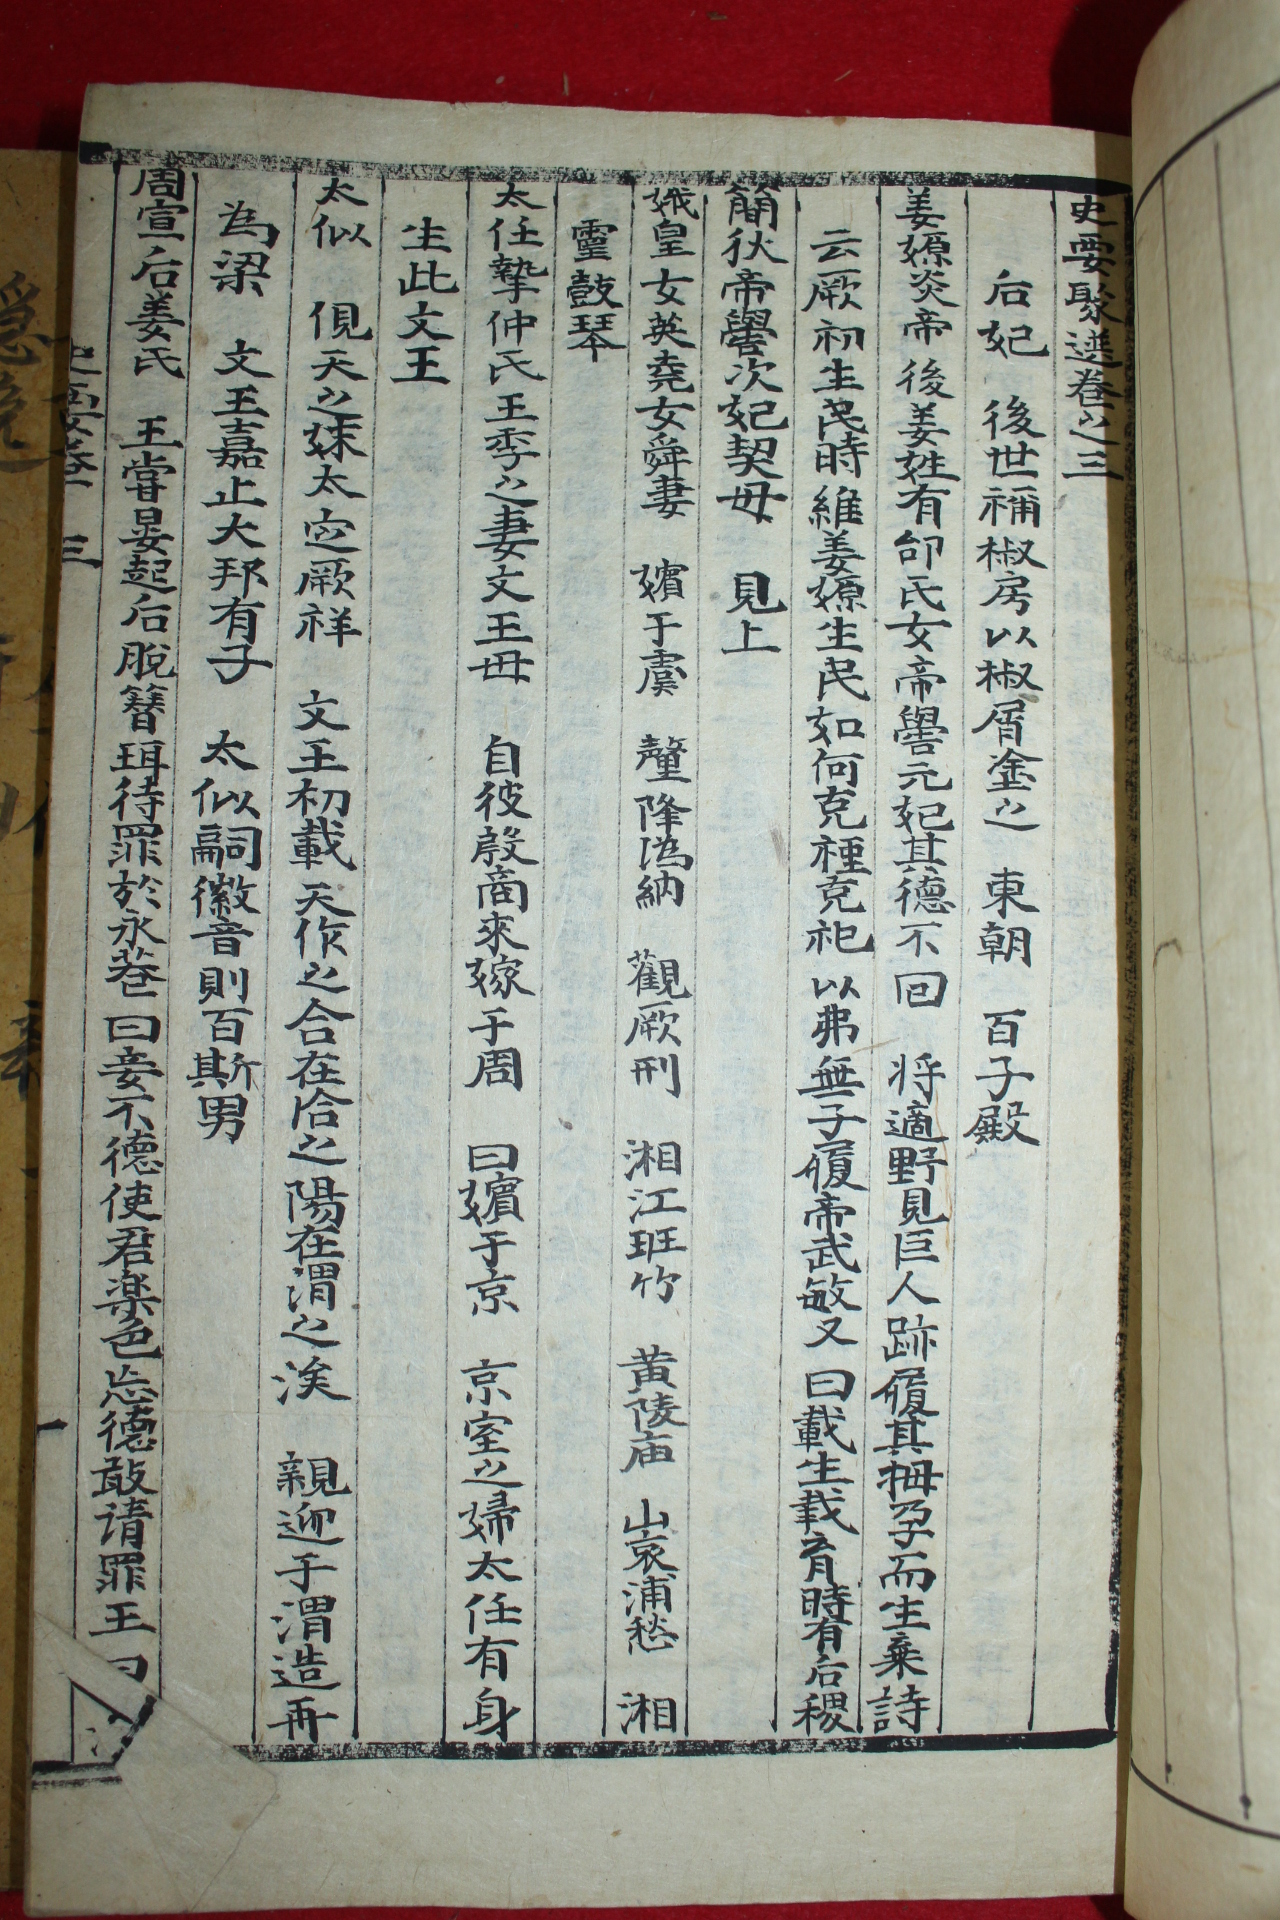 史要聚選卷之三
后妃 後世稱椒房以椒屑塗之 東朝 百子殿
姜嫄炎帝後姜姓有邰氏女帝嚳元妃其德不回 将適野見巨人跡履其拇孕而生棄詩
云厥初生民時維姜嫄生民如何克禋克祀以弗無子履帝武敏又曰載生載育時有后稷
簡狄帝嚳次妃契母 見上
娥皇女英堯女舜妻 嬪于虞 釐降溈納 觀厥刑 湘江班竹 黄陵庙 山哀浦愁 湘
靈鼓琴
太任摯仲氏王季之妻文王母 自彼殷商來嫁于周 曰嬪于京 京室之婦太任有身
生此文王
太似 俔天之妹太定厥祥 文王初載天作之合在洽之陽在渭之涘 親迎于渭造舟
為梁 文王嘉止大邦有子 太似嗣徽音則百斯男
周宣后姜氏 王嘗晏起后脫簪珥待罪於永巷曰妾不德使君楽色忘德敢请罪王曰
史要卷 三
一